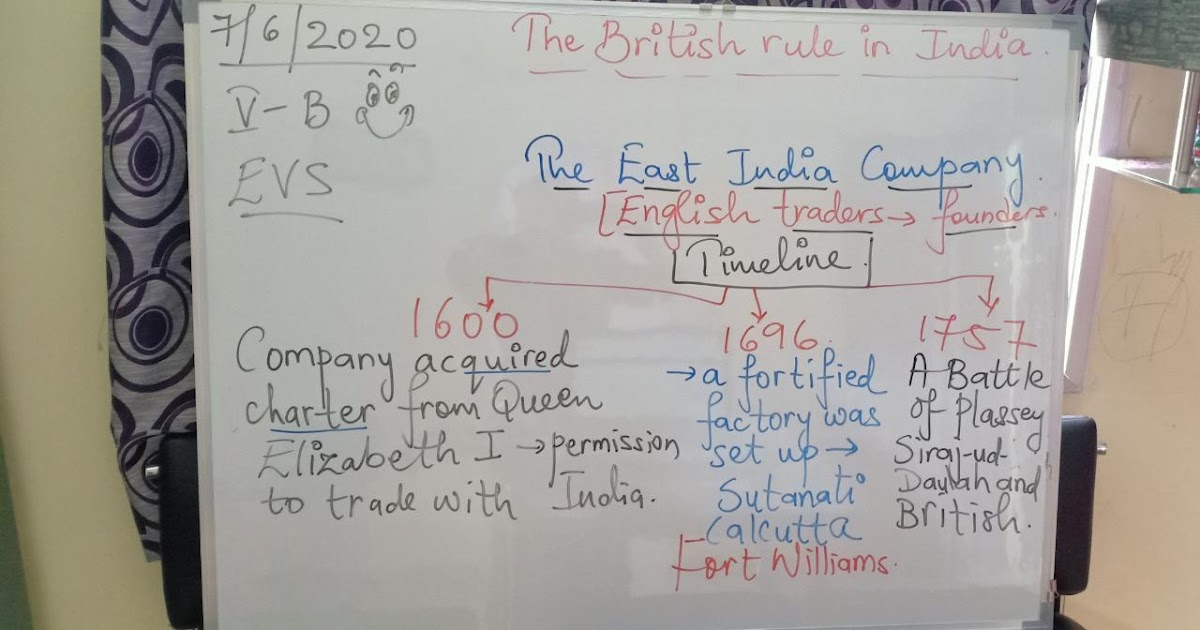 7/6/2020
V-B
EVS
The British rule in India.
The East India Company.
[English traders → founders.
Timeline.
1600
Company acquired
charter from Queen
Elizabeth I → permission
to trade with India.
1696.
→ a fortified
factory was
set up →
Sutanati
Calcutta
Fort Williams.
1757
A Battle
of Plassey
Siraj-ud-
Daulah and
British.